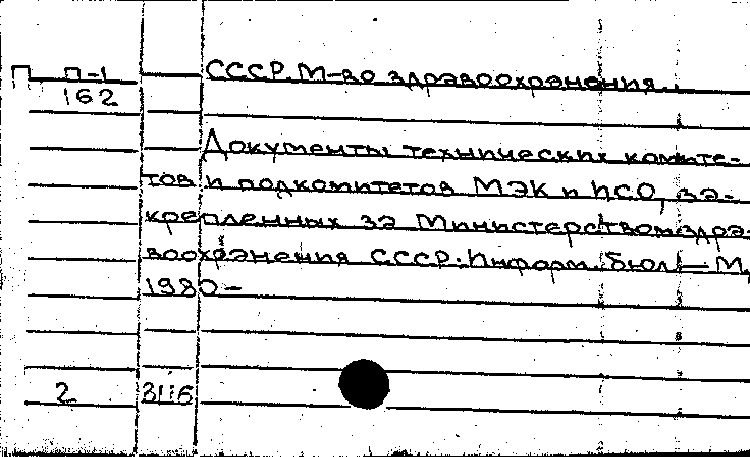 П П-1 СССР. М-во здравоохранения.
162
Документы технических комите-
тов и подкомитетов МЭК и ИСО, за-
крепленных за Министерством здра-
воохранения СССР. Информ. бюл. — М.,
1980 —
2 3116